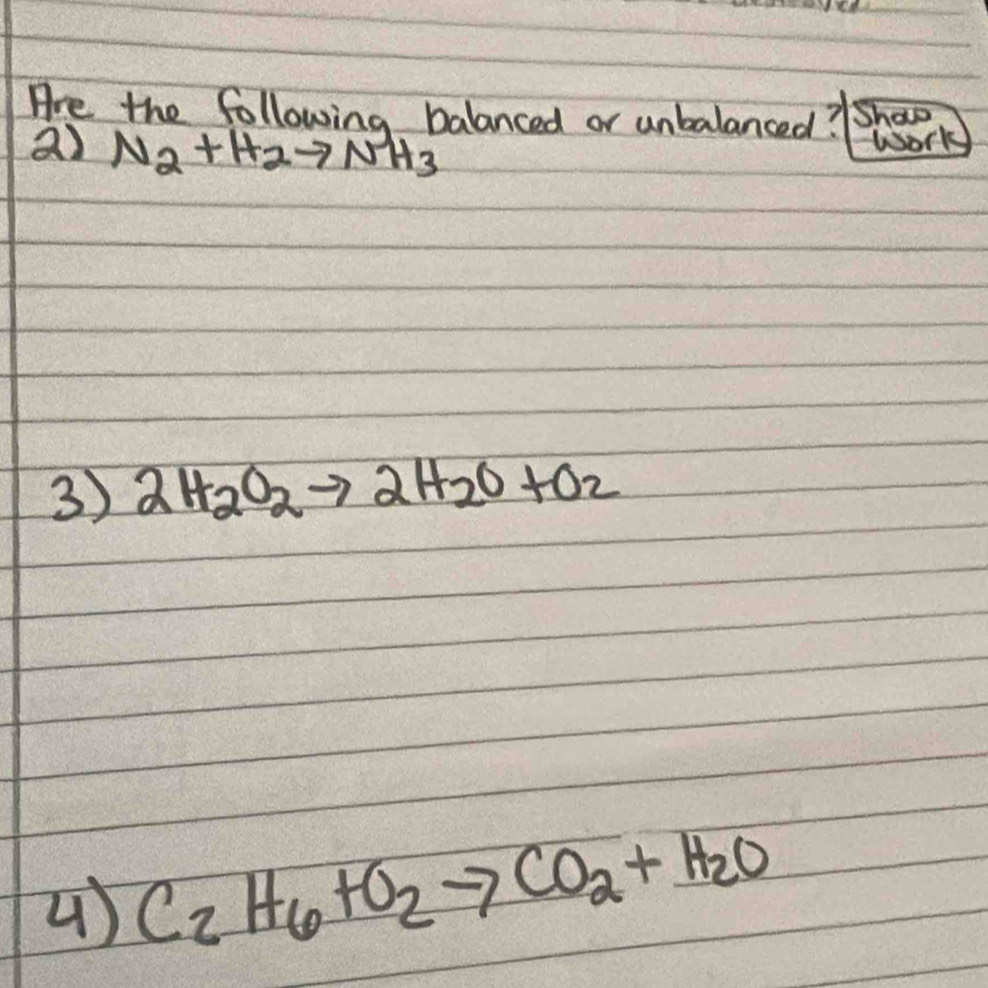 Are the following balanced or unbalanced? Show
Work
2) N₂ + H₂ → NH₃
3) 2H₂O₂ → 2H₂O + O₂
4) C₂H₆ + O₂ → CO₂ + H₂O